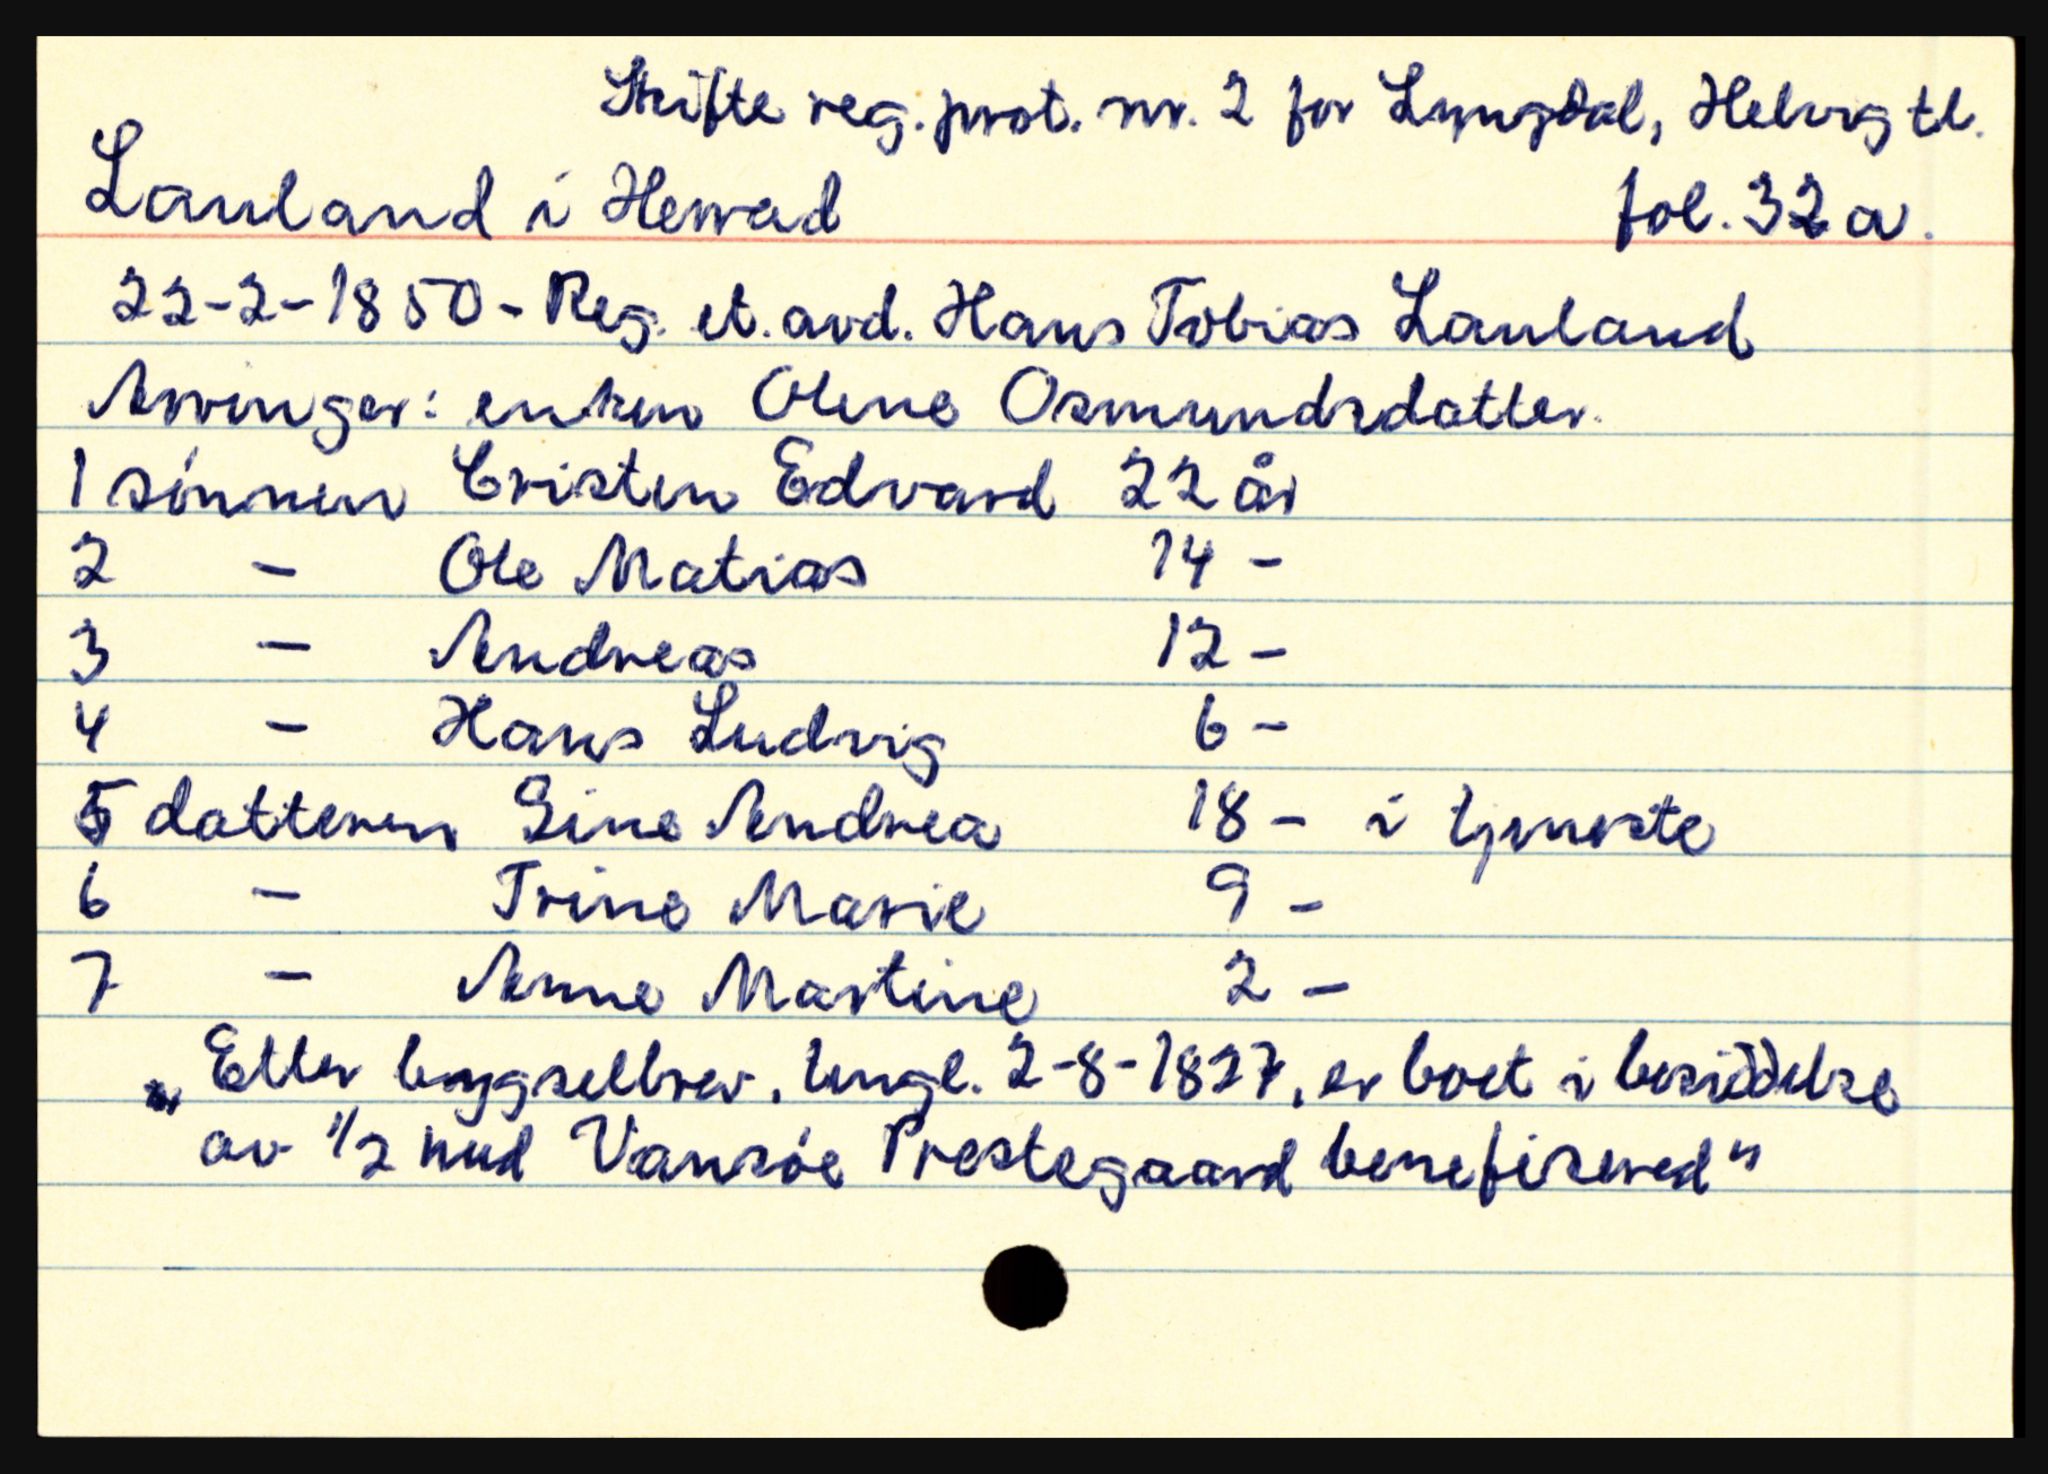 Skifte reg. prot. nr. 2 for Lyngdal, Helvig tl.
Lauland i Herrad fol. 32 a.
22-2-1850 - Reg. et. avd. Hans Tobias Lauland
Arvinger: enken Olene Osmundsdatter.
1 sönnen Cristen Edvard 22 år
2 - Ole Matias 14 -
3 - Andreas 12 -
4 - Hans Ludvig 6 -
5 datteren Sine Andrea 18 - i tjeneste
6 - Trine Marie 9 -
7 - Anne Martine 2 -
„Etter bygselbrev. tingl. 2-8-1827, er boet i besiddelse
av 1/2 hud Vansöe Prestegaard benefisered"